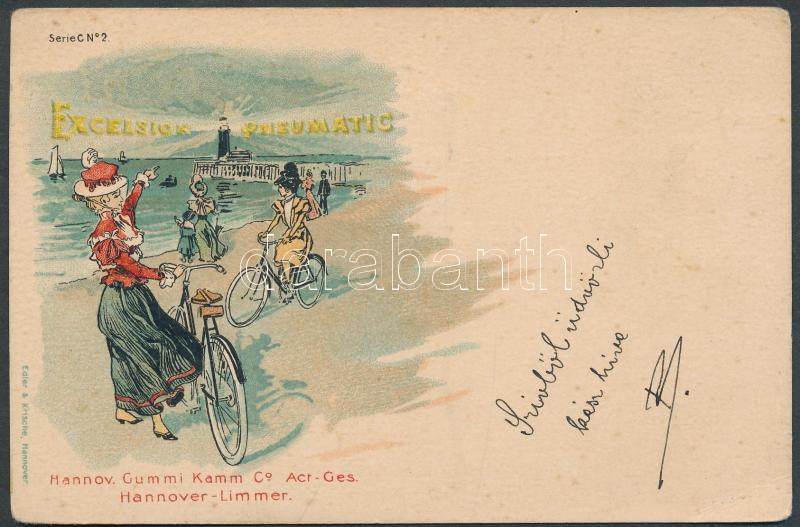 Serie C Nº 2.
EXCELSIOR PNEUMATIC
darabanth
Szivből üdvözli
hive
Hannov. Gummi Kamm Cº Act-Ges.
Hannover-Limmer.
Edler & Krische, Hannover